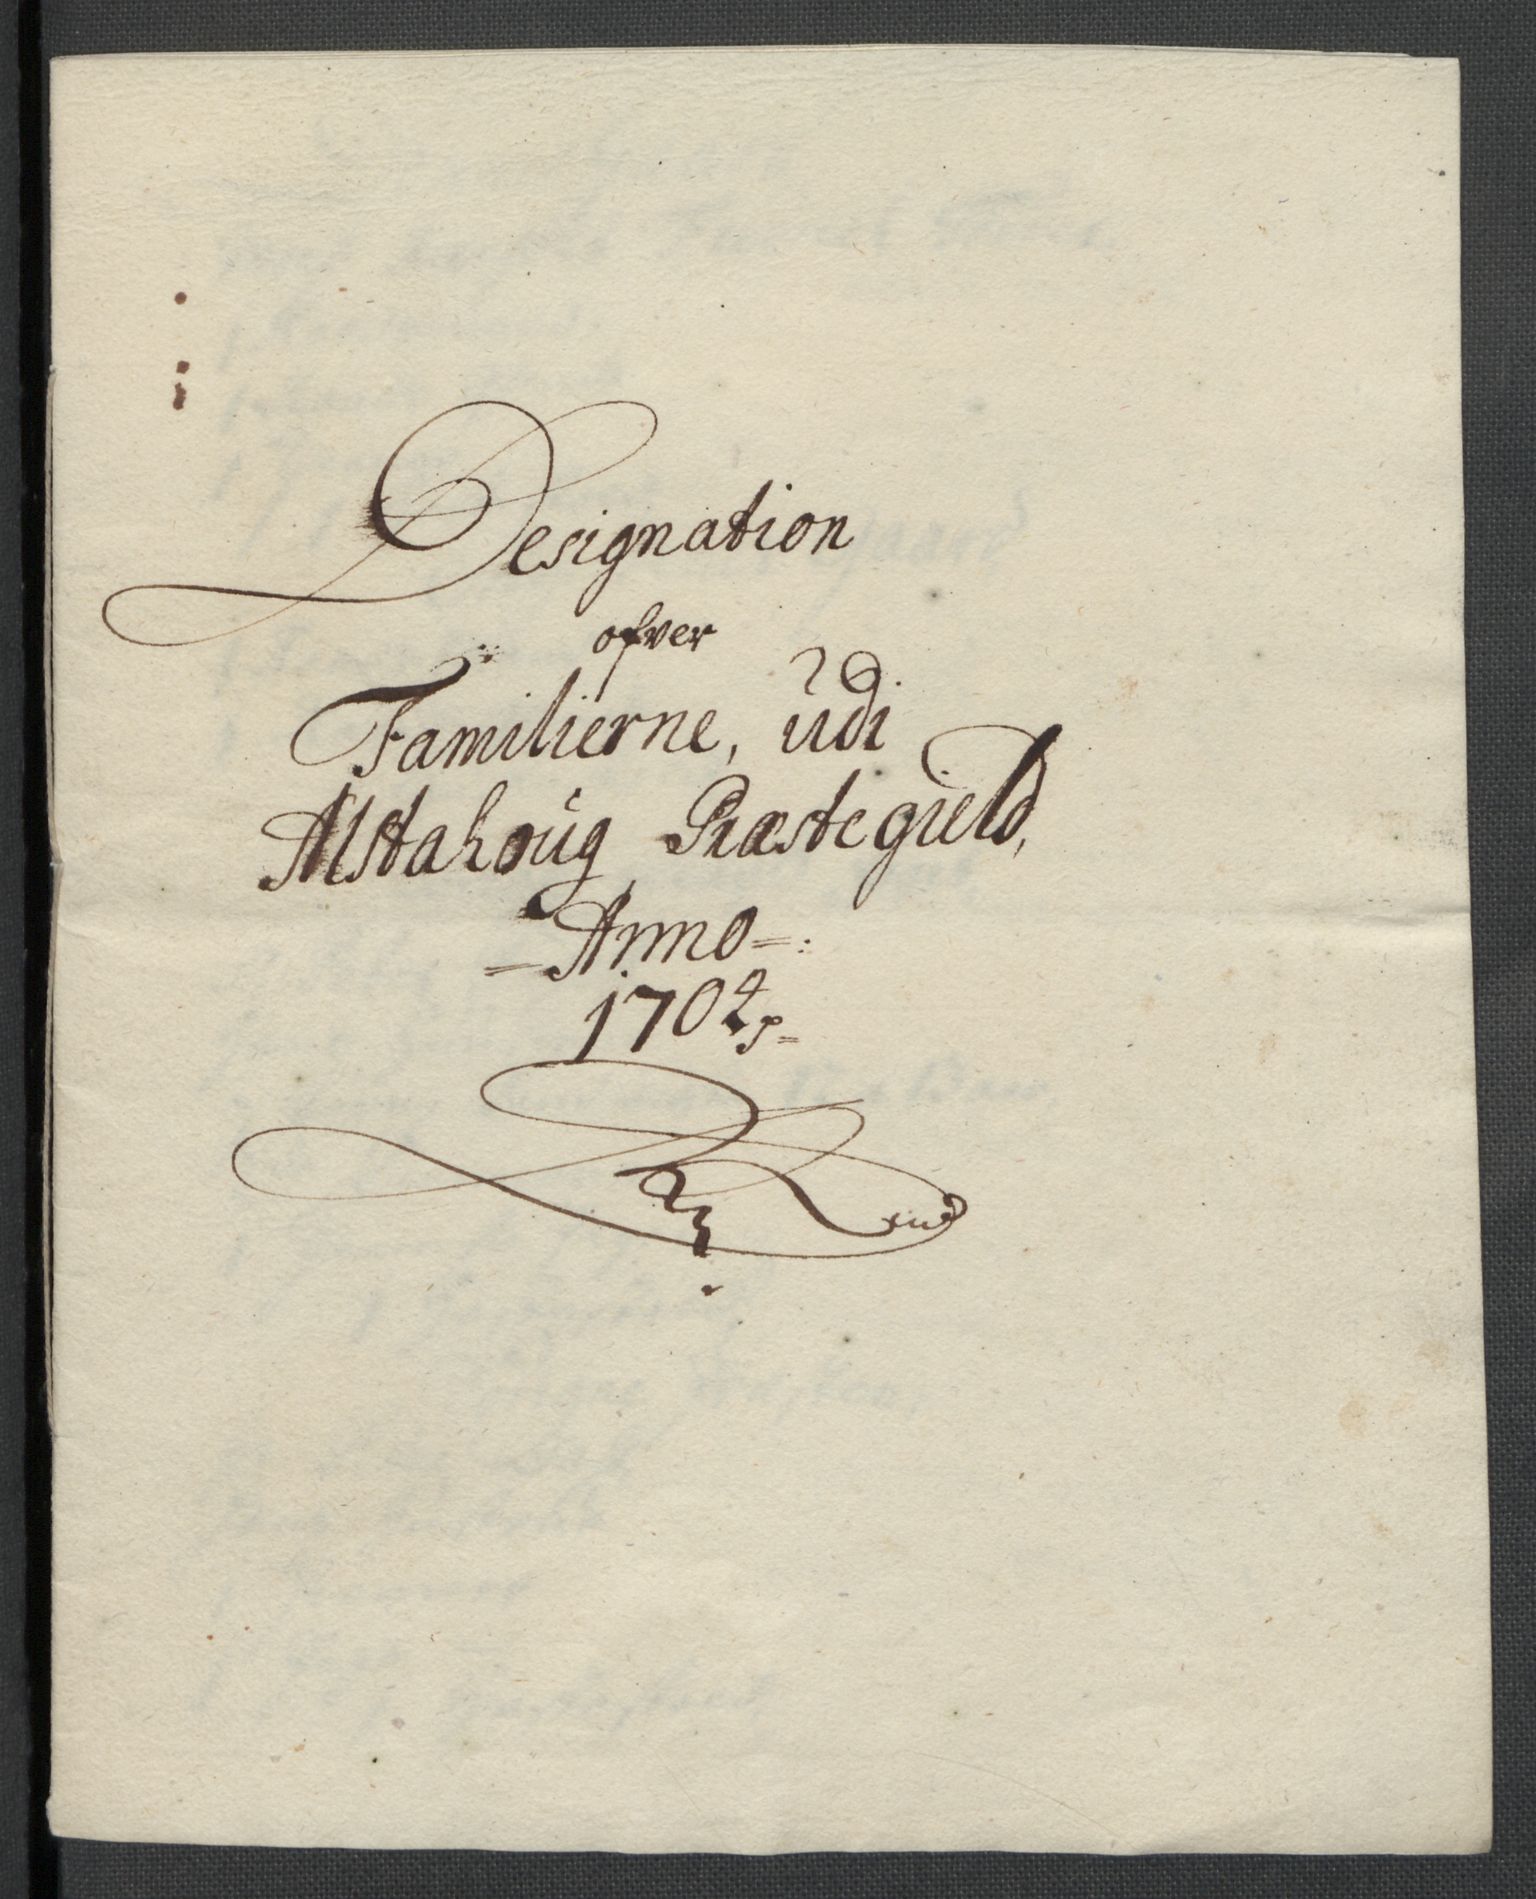 Designation
ofver
Familierne, udi
Alstahoug Præstegield,
= Anno =:
1704